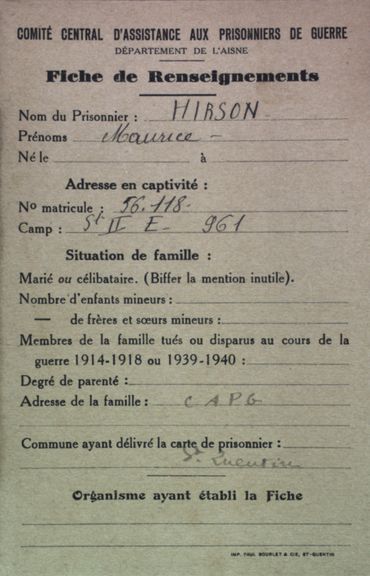 COMITÉ CENTRAL D'ASSISTANCE AUX PRISONNIERS DE GUERRE
DÉPARTEMENT DE L'AISNE
Fiche de Renseignements
Nom du Prisonnier : HIRSON
Prénoms Maurice
Né le à
Adresse en captivité :
No matricule : 56.118
Camp : St II E 961
Situation de famille :
Marié ou célibataire. (Biffer la mention inutile).
Nombre d'enfants mineurs :
— de frères et sœurs mineurs :
Membres de la famille tués ou disparus au cours de la
guerre 1914-1918 ou 1939-1940 :
Degré de parenté :
Adresse de la famille : C A P G
Commune ayant délivré la carte de prisonnier :
St Quentin
Organisme ayant établi la Fiche
IMP. THUL BOURLET & CIE, ST-QUENTIN